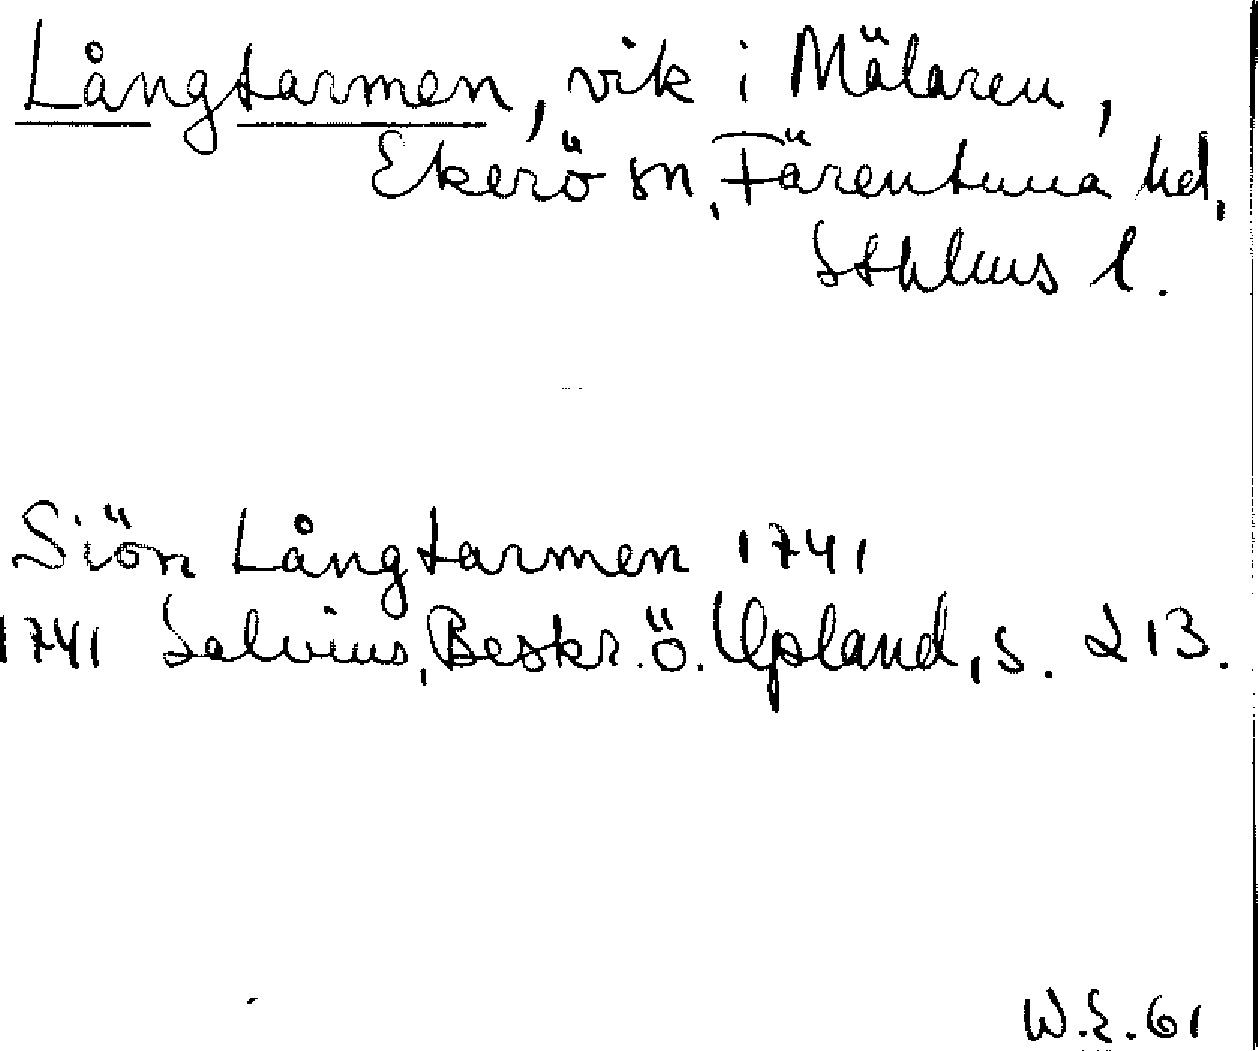 Långtarmen, vik i Mälaren,
Ekerö sn, Färentuna hd,
Sthlms l.
Siön Långtarmen 1741
1741 Salvius, Beskr. ö. Upland, s. 213.
W.E. 61